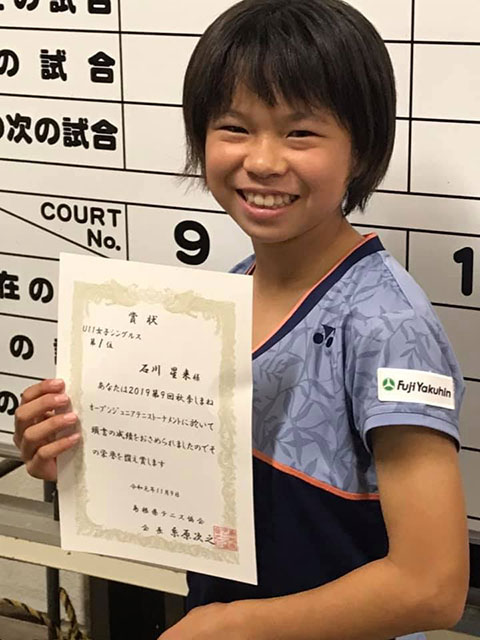 の試合
の試合
の次の試合
COURT
No.
9
1
在の
の
賞状
U11女子シングルス
第1位
石川 星来 様
あなたは2019第9回秋季しまね
オープンジュニアテニストーナメントに於いて
頭書の成績をおさめられましたのでそ
の栄誉を讃え賞します
令和元年11月9日
島根県テニス協会
会長
YONEX
Fuji Yakuhin